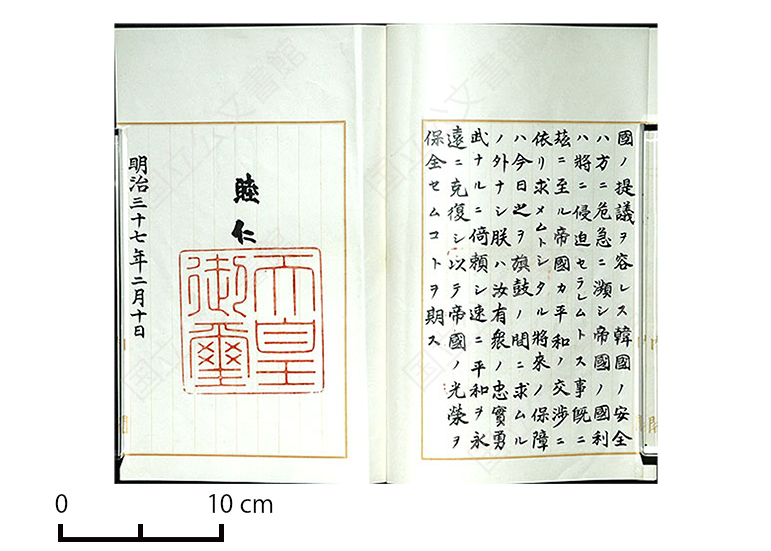 國ノ提議ヲ容レス韓國ノ安全
ハ方ニ危急ニ瀕シ帝國ノ國利
ハ將ニ侵迫セラレムトス事既ニ
茲ニ至ル帝國カ平和ノ交渉ニ
依リ求メムトシタル將來ノ保障
ハ今日之ヲ旗鼓ノ間ニ求ムル
ノ外ナシ朕ハ汝有衆ノ忠實勇
武ナルニ倚頼シ速ニ平和ヲ永
遠ニ克復シ以テ帝國ノ光榮ヲ
保全セムコトヲ期ス
睦仁
天皇
御璽
明治三十七年二月十日
国立公文書館
0 10 cm